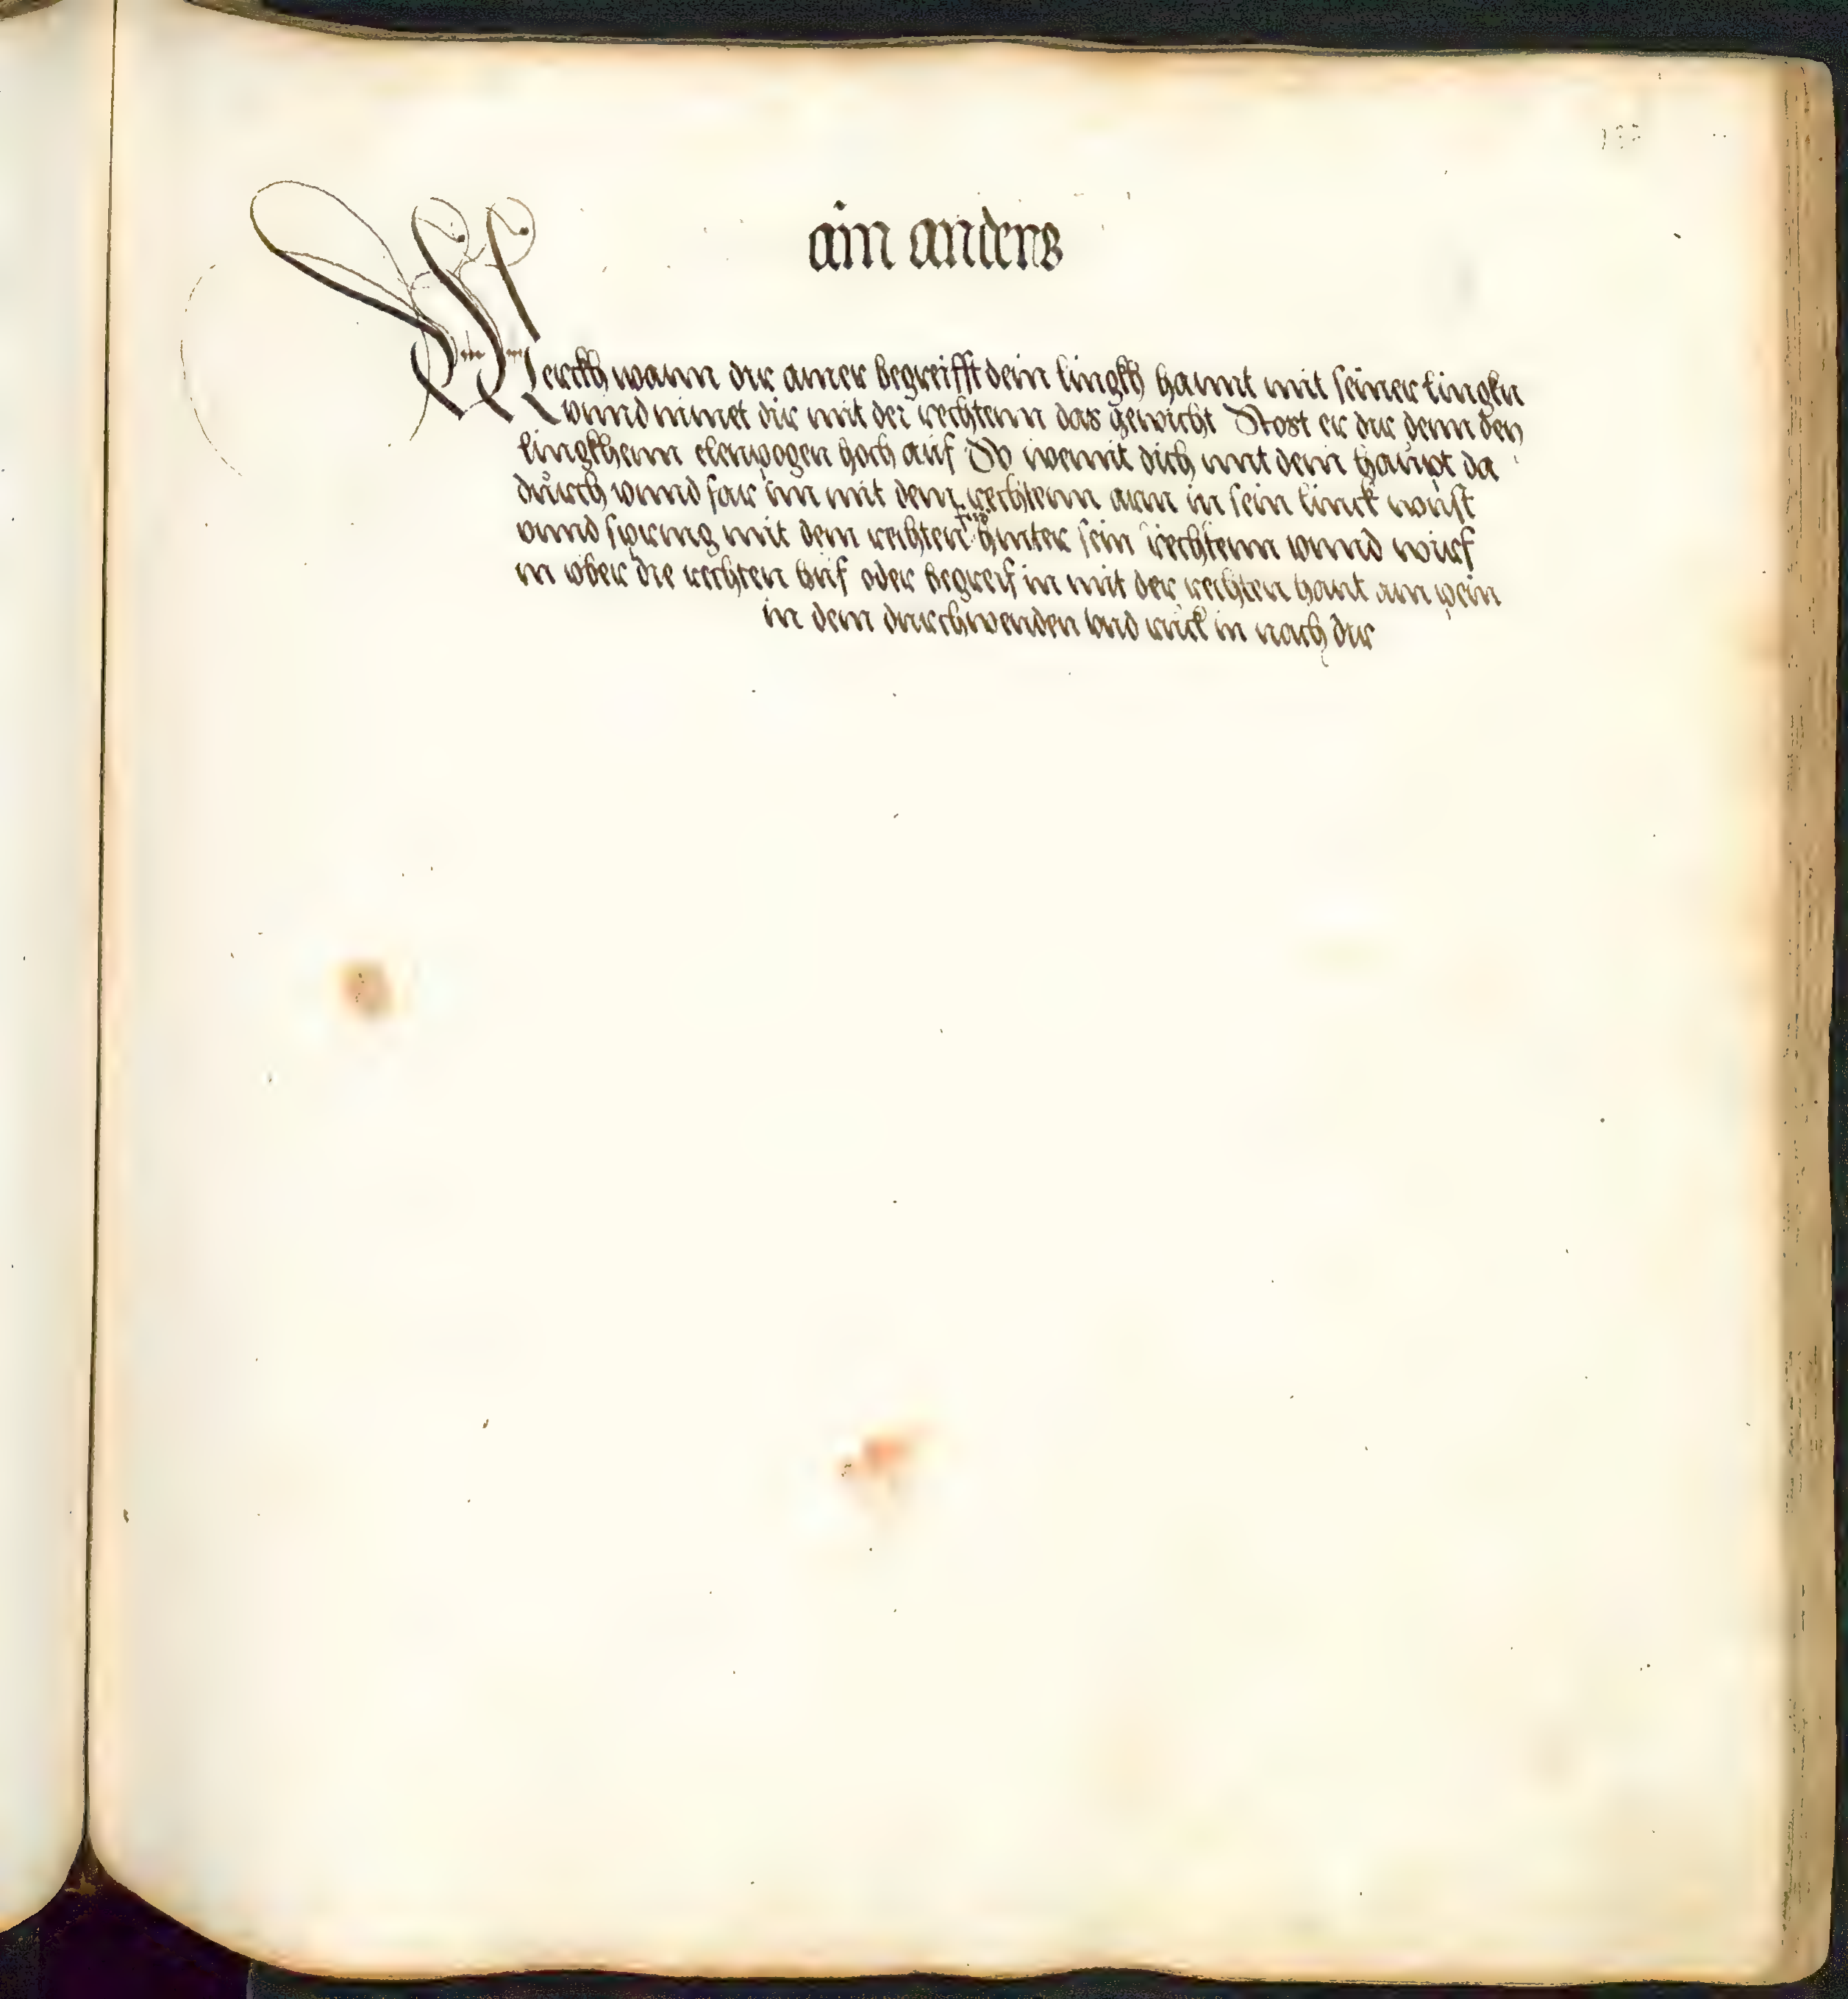 ain anders
Merckh wann dir ainer begreifft dein lingkh hannt mit seiner lingkn
vnnd nimet dir mit der rechtenn das gewicht Stost er dir denn den
lingkhenn elenpogen hoch auf So wennt dich mit dem haupt da
durch vnnd far im mit dem rechtenn arm in sein linck wüst
vnnd spring mit dem rechten fus hinter sein rechtenn vnnd wirf
in vber die rechten huf oder begreif in mit der rechten hant am pein
in dem durchwenden vnd ruck in nach dir